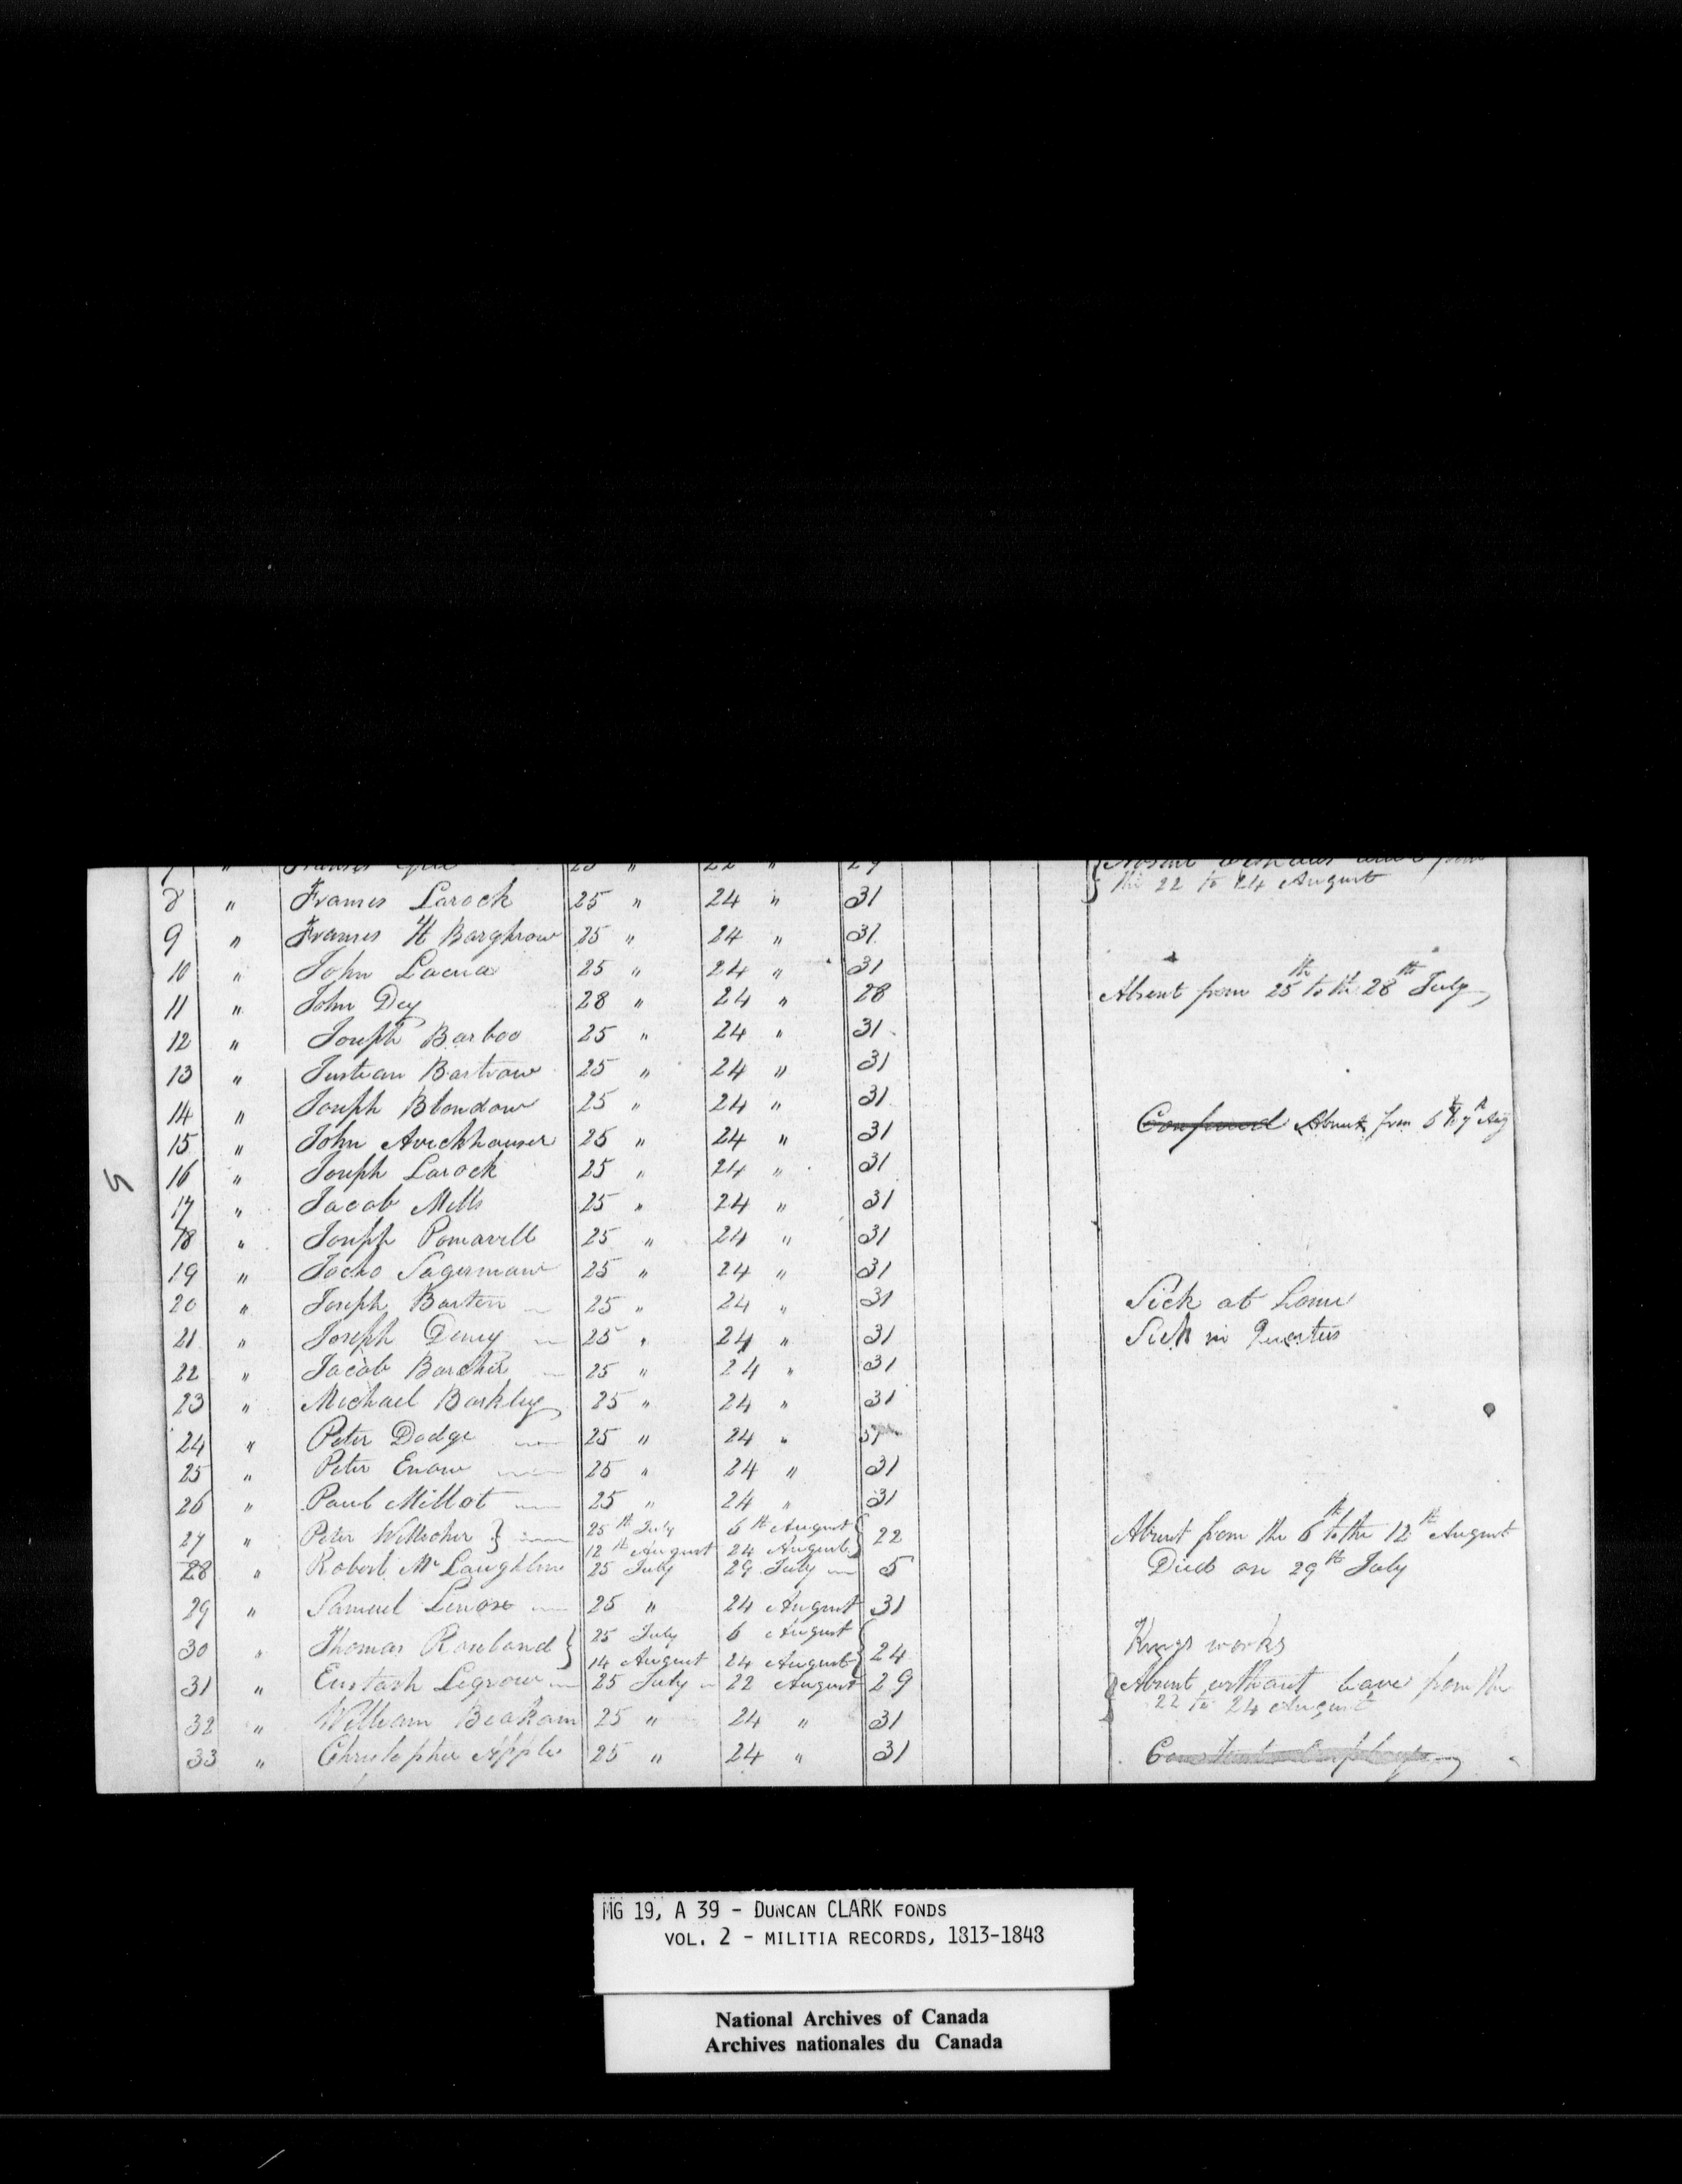 the 22 to 24 August
8 " Frances Larock 25 " 24 " 31
9 " Frances H Barghrow 25 " 24 " 31
10 " John Lacua 25 " 24 " 31
11 " John Dey 28 " 24 " 28 Absent from 25th to the 28th July
12 " Joseph Barboo 25 " 24 " 31
13 " Bastraw 25 " 24 " 31
14 " Joseph Blondow 25 " 24 " 31
15 " John Avickhouser 25 " 24 " 31 Confined Absent from 6th to 7th Aug
16 " Joseph Larock 25 " 24 " 31
17 " Jacob Mills 25 " 24 " 31
18 " Joseph Pomarell 25 " 24 " 31
19 " Sagerman 25 " 24 " 31
20 " Joseph Barten 25 " 24 " 31 Sick at home
21 " Joseph Deney 25 " 24 " 31 Sick in Quarters
22 " Jacob Barcher 25 " 24 " 31
23 " Michael Barkley 25 " 24 " 31
24 " Peter Dodge 25 " 24 " 31
25 " Peter Enow 25 " 24 " 31
26 " Paul Millot 25 " 24 " 31
27 " Peter Willscher } 25th July 6th August { 22 Absent from the 6th to the 12th August
12th August 24 August }
28 " Robert McLaughline 25 July 29 July 5 Died on 29th July
29 " Samuel Lenox 25 " 24 August 31
30 " Thomas Rowland } 25 July 6 August { 24 Kings works
14 August 24 August }
31 " Eustash Legrow 25 July 22 August 29 { Absent without leave from the
22 to 24 August
32 " William Beakam 25 " 24 " 31
33 " Christopher Apple 25 " 24 " 31
5
MG 19, A 39 - DUNCAN CLARK FONDS
VOL. 2 - MILITIA RECORDS, 1813-1848
National Archives of Canada
Archives nationales du Canada